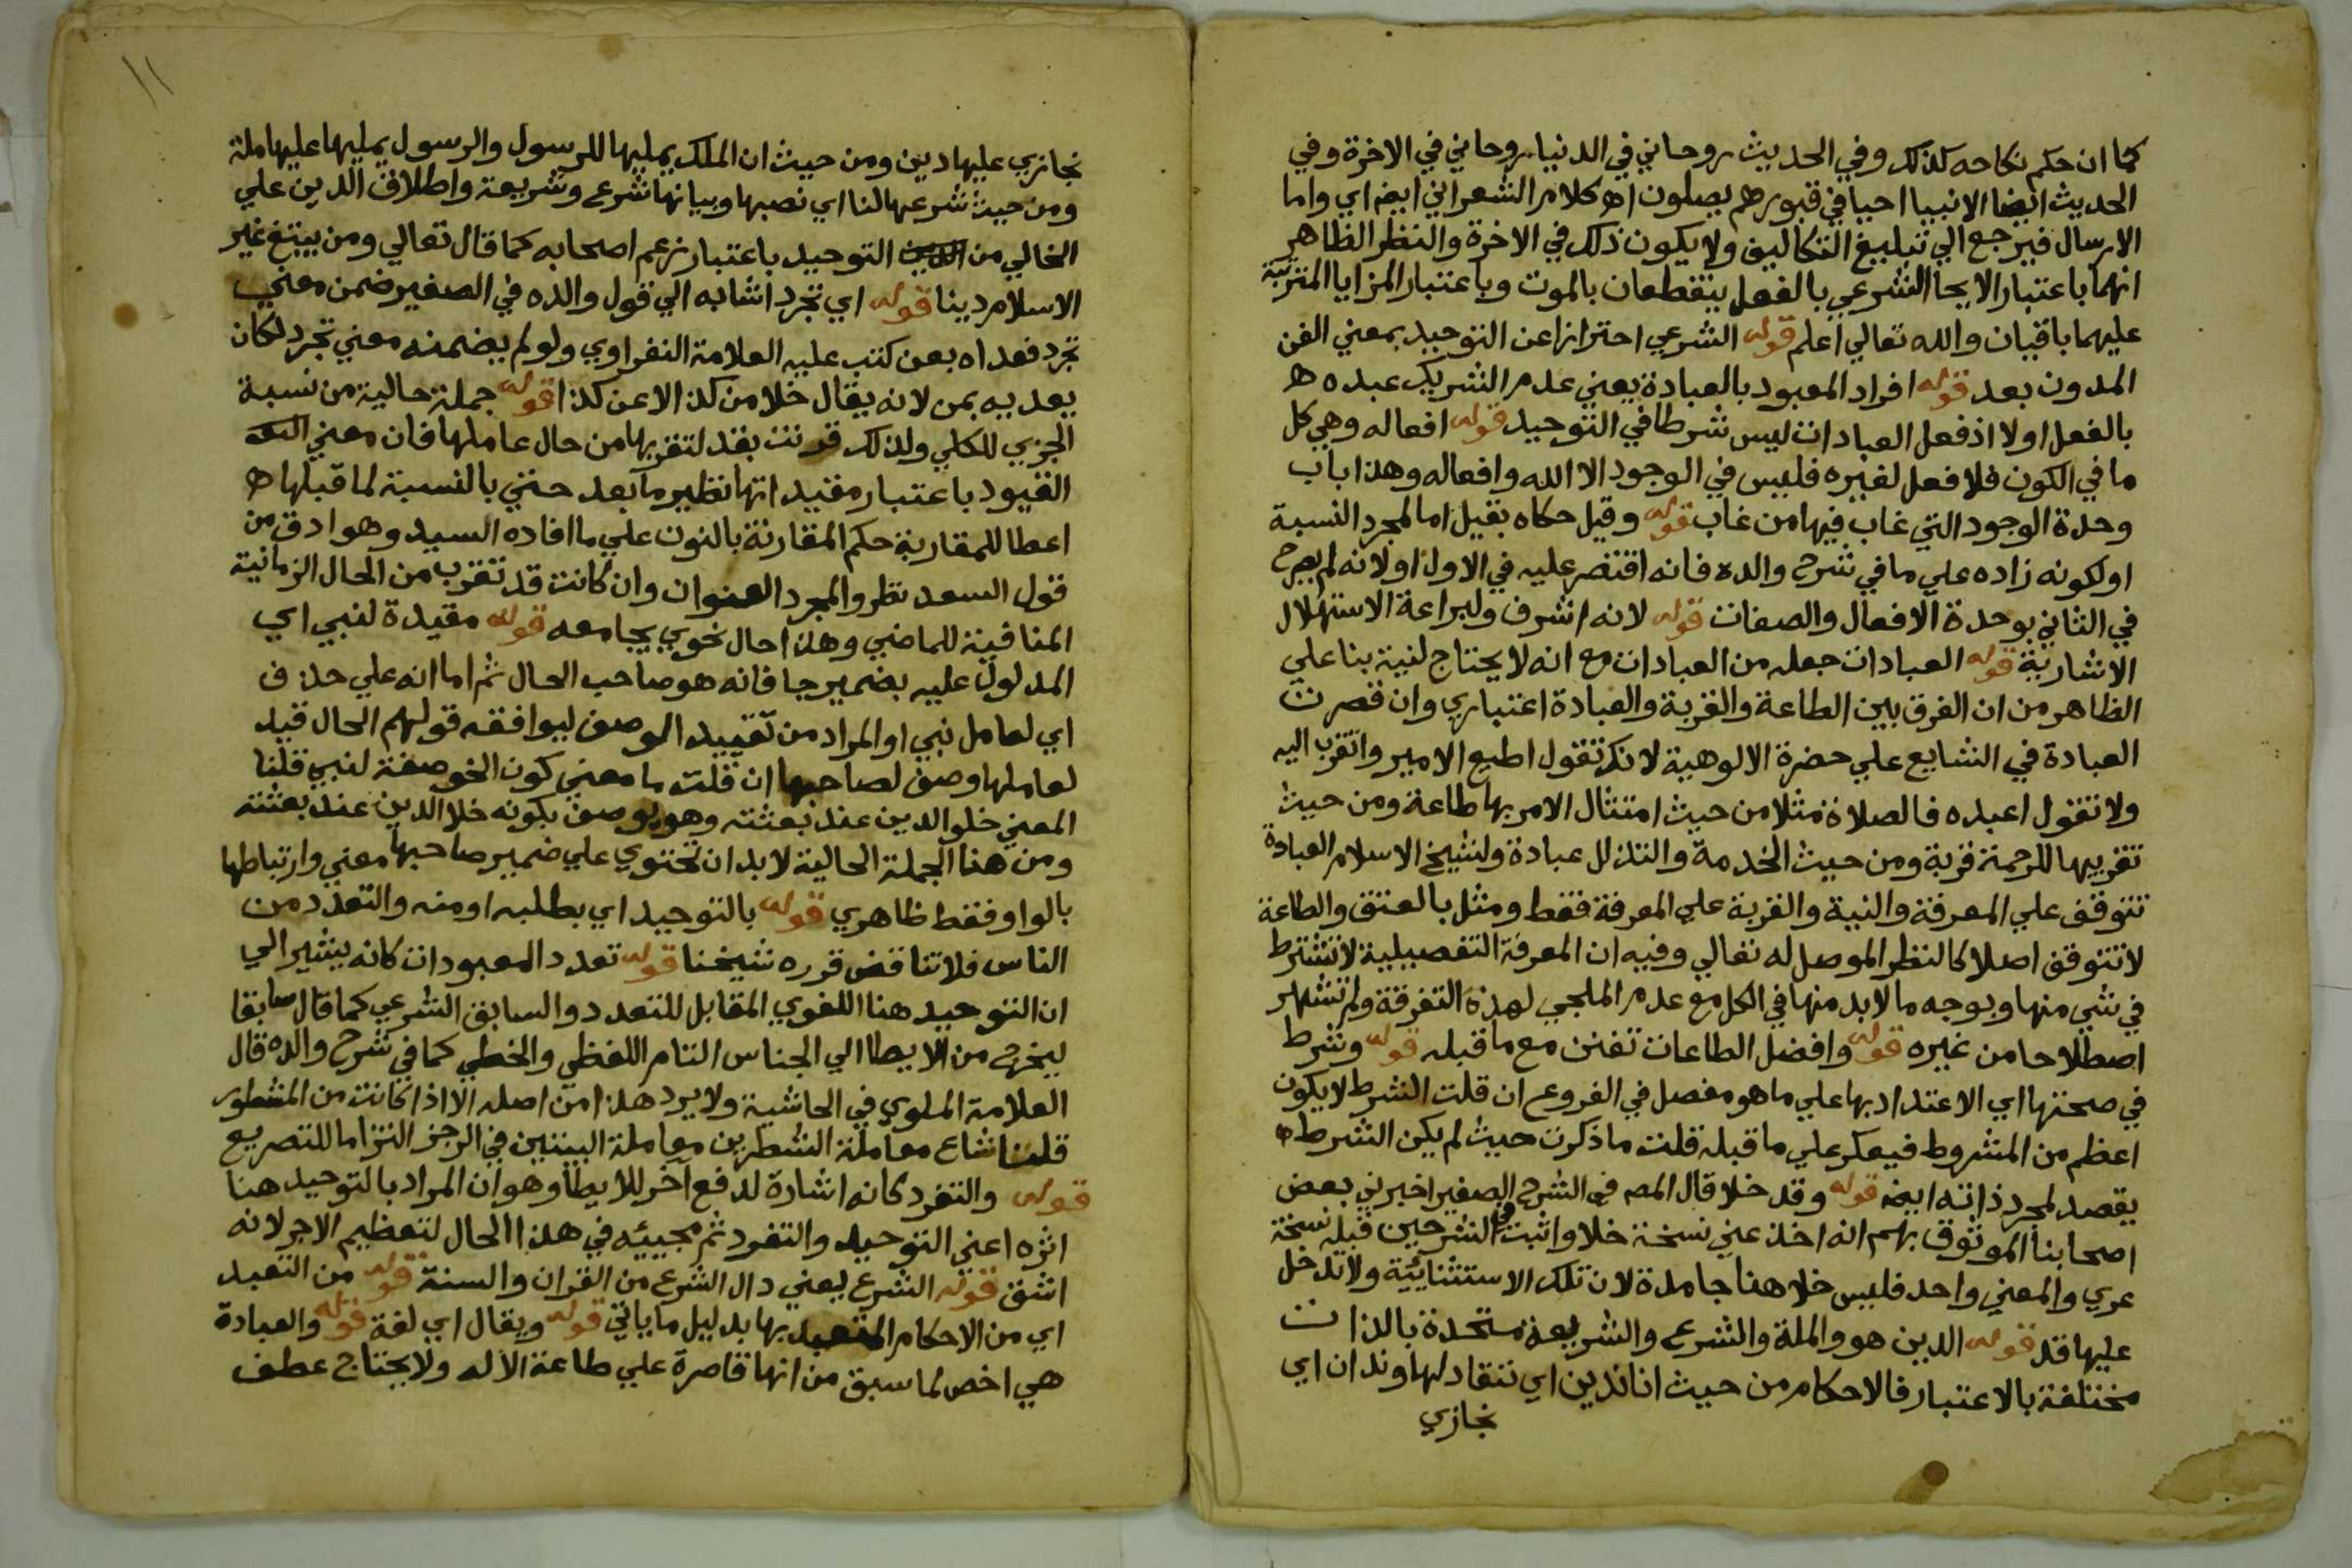 كما ان حكم نكاحه كذلك وفي الحديث روحاني في الدنيا روحاني في الاخرة وفي
الحديث ايضا الانبيا احيا في قبورهم يصلون اه كلام الشعراني ايضا اي واما
الارسال فيرجع الي تبليغ التكاليف ولا يكون ذلك في الاخرة والنظر الظاهر
انهما باعتبار الايحا الشرعي بالفعل ينقطعان بالموت وباعتبار المزايا المترتبة
عليهما باقيان والله تعالي اعلم قوله الشرعي احترازا عن التوحيد بمعني الفن
المدون بعد قوله افراد المعبود بالعبادة يعني عدم التشريك عبده ه
بالفعل اولا اذ فعل العبادات ليس شرطا في التوحيد قوله افعاله وهي كل
ما في الكون فلا فعل لغيره فليس في الوجود الا الله وافعاله وهذا باب
وحدة الوجود التي غاب فيها من غاب قوله وقيل حكاه بقيل اما لمجرد النسبة
او لكونه زاده علي ما في شرح والده فانه اقتصر عليه في الاول او لانه لم يصرح
في الثاني بوحدة الافعال والصفات قوله لانه اشرف ولبراعة الاستهلال
الاشارية قوله العبادات جعله من العبادات مع انه لا يحتاج لنية بنا علي
الظاهر من ان الفرق بين الطاعة والقربة والعبادة اعتباري وان قصرت
العبادة في الشايع علي حضرة الالوهية لانك تقول اطيع الامير واتقرب اليه
ولا تقول اعبده فالصلاة مثلا من حيث امتثال الامر بها طاعة ومن حيث
تقريبها للرحمة قربة ومن حيث الخدمة والتذلل عبادة ولشيخ الاسلام العبادة
تتوقف علي المعرفة والنية والقربة علي المعرفة فقط ومثل بالعتق والطاعة
لا تتوقف اصلا كالنظر الموصل له تعالي وفيه ان المعرفة التفصيلية لا تشترط
في شي منها وبوجه ما لا بد منها في الكل مع عدم الملجي لهذه التفرقة ولم تشتهر
اصطلاحا من غيره قوله وافضل الطاعات تفنن مع ما قبله قوله وشرط
في صحتها اي الاعتداد بها علي ما هو مفصل في الفروع ان قلت الشرط لا يكون
اعظم من المشروط فيعكر علي ما قبله قلت ما ذكرت حيث لم يكن الشرط ه
يقصد لمجرد ذاته ايضا قوله وقد خلا قال المص في الشرح الصغير اخبرني بعض
اصحابنا الموثوق بهم انه اخذ عني نسخة خلا واثبت في الشرحين قبله نسخة
عري والمعني واحد فليس خلا هنا جامدة لان تلك الاستثنائية ولا تدخل
عليها قد قوله الدين هو والملة والشرع والشريعة متحدة بالذات
مختلفة بالاعتبار فالاحكام من حيث انا ندين اي ننقاد لها وندان اي
نجازي
١١
نجازي عليها دين ومن حيث ان الملك يمليها للرسول والرسول يمليها علينا ملة
ومن حيث شرعها لنا اي نصبها وبيانها شرع وشريعة واطلاق الدين علي
الخالي من التوحيد باعتبار زعم اصحابه كما قال تعالي ومن يبتغ غير
الاسلام دينا قوله اي تجرد اشار به الي قول والده في الصغير ضمن معني
تجرد فعداه بعن كتب عليه العلامة النفراوي ولو لم يضمنه معني تجرد لكان
يعديه بمن لانه يقال خلا من كذا لا عن كذا قوله جملة حالية من نسبة
الجزي للكلي ولذلك قرنت بقد لتقربها من حال عاملها فان معني
القيود باعتبار مفيد انها نظير ما بعد حتي بالنسبة لما قبلها ه
اعطا للمقاربة حكم المقارنة بالنون علي ما افاده السيد وهو ادق من
قول السعد نظروا لمجرد العنوان وان كانت قد تقرب من الحال الزمانية
المنافية للماضي وهذا حال نحوي يجامعه قوله مقيدة لنبي اي
المدلول عليه بضمير جا فانه هو صاحب الحال ثم اما انه علي حذف
اي لعامل نبي او المراد من تقييد الوصف ليوافقه قولهم الحال قيد
لعاملها وصف لصاحبها ان قلت ما معني كون الخلو صفة لنبي قلنا
المعني خلو الدين عند بعثته وهو يوصف بكونه خلا الدين عند بعثته
ومن هنا الجملة الحالية لا بد ان تحتوي علي ضمير صاحبها معني وارتباطها
بالواو فقط ظاهري قوله بالتوحيد اي بطلبه او منه والتعدد من
الناس فلا تناقض قرره شيخنا قوله تعدد المعبودات كانه يشير الي
ان التوحيد هنا اللغوي المقابل للتعدد والسابق الشرعي كما قال سابقا
ليخرج من الايطا الي الجناس التام اللفظي والخطي كما في شرح والده قال
العلامة الملوي في الحاشية ولا يرد هذا من اصله الا اذا كانت من المشطور
قلنا شاع معاملة الشطرين معاملة البيتين في الرجز التزاما للتصريع
قوله والتفرد كانه اشارة لدفع اخر للايطا وهو ان المراد بالتوحيد هنا
اثره اعني التوحيد والتفرد ثم مجيئه في هذا الحال لتعظيم الاجر لانه
اشق قوله الشرع يعني دال الشرع من القران والسنة قوله من التعبد
اي من الاحكام المتعبد بها بدليل ما ياتي قوله ويقال اي لغة قوله والعبادة
هي اخص لما سبق من انها قاصرة علي طاعة الاله ولا يحتاج عطف